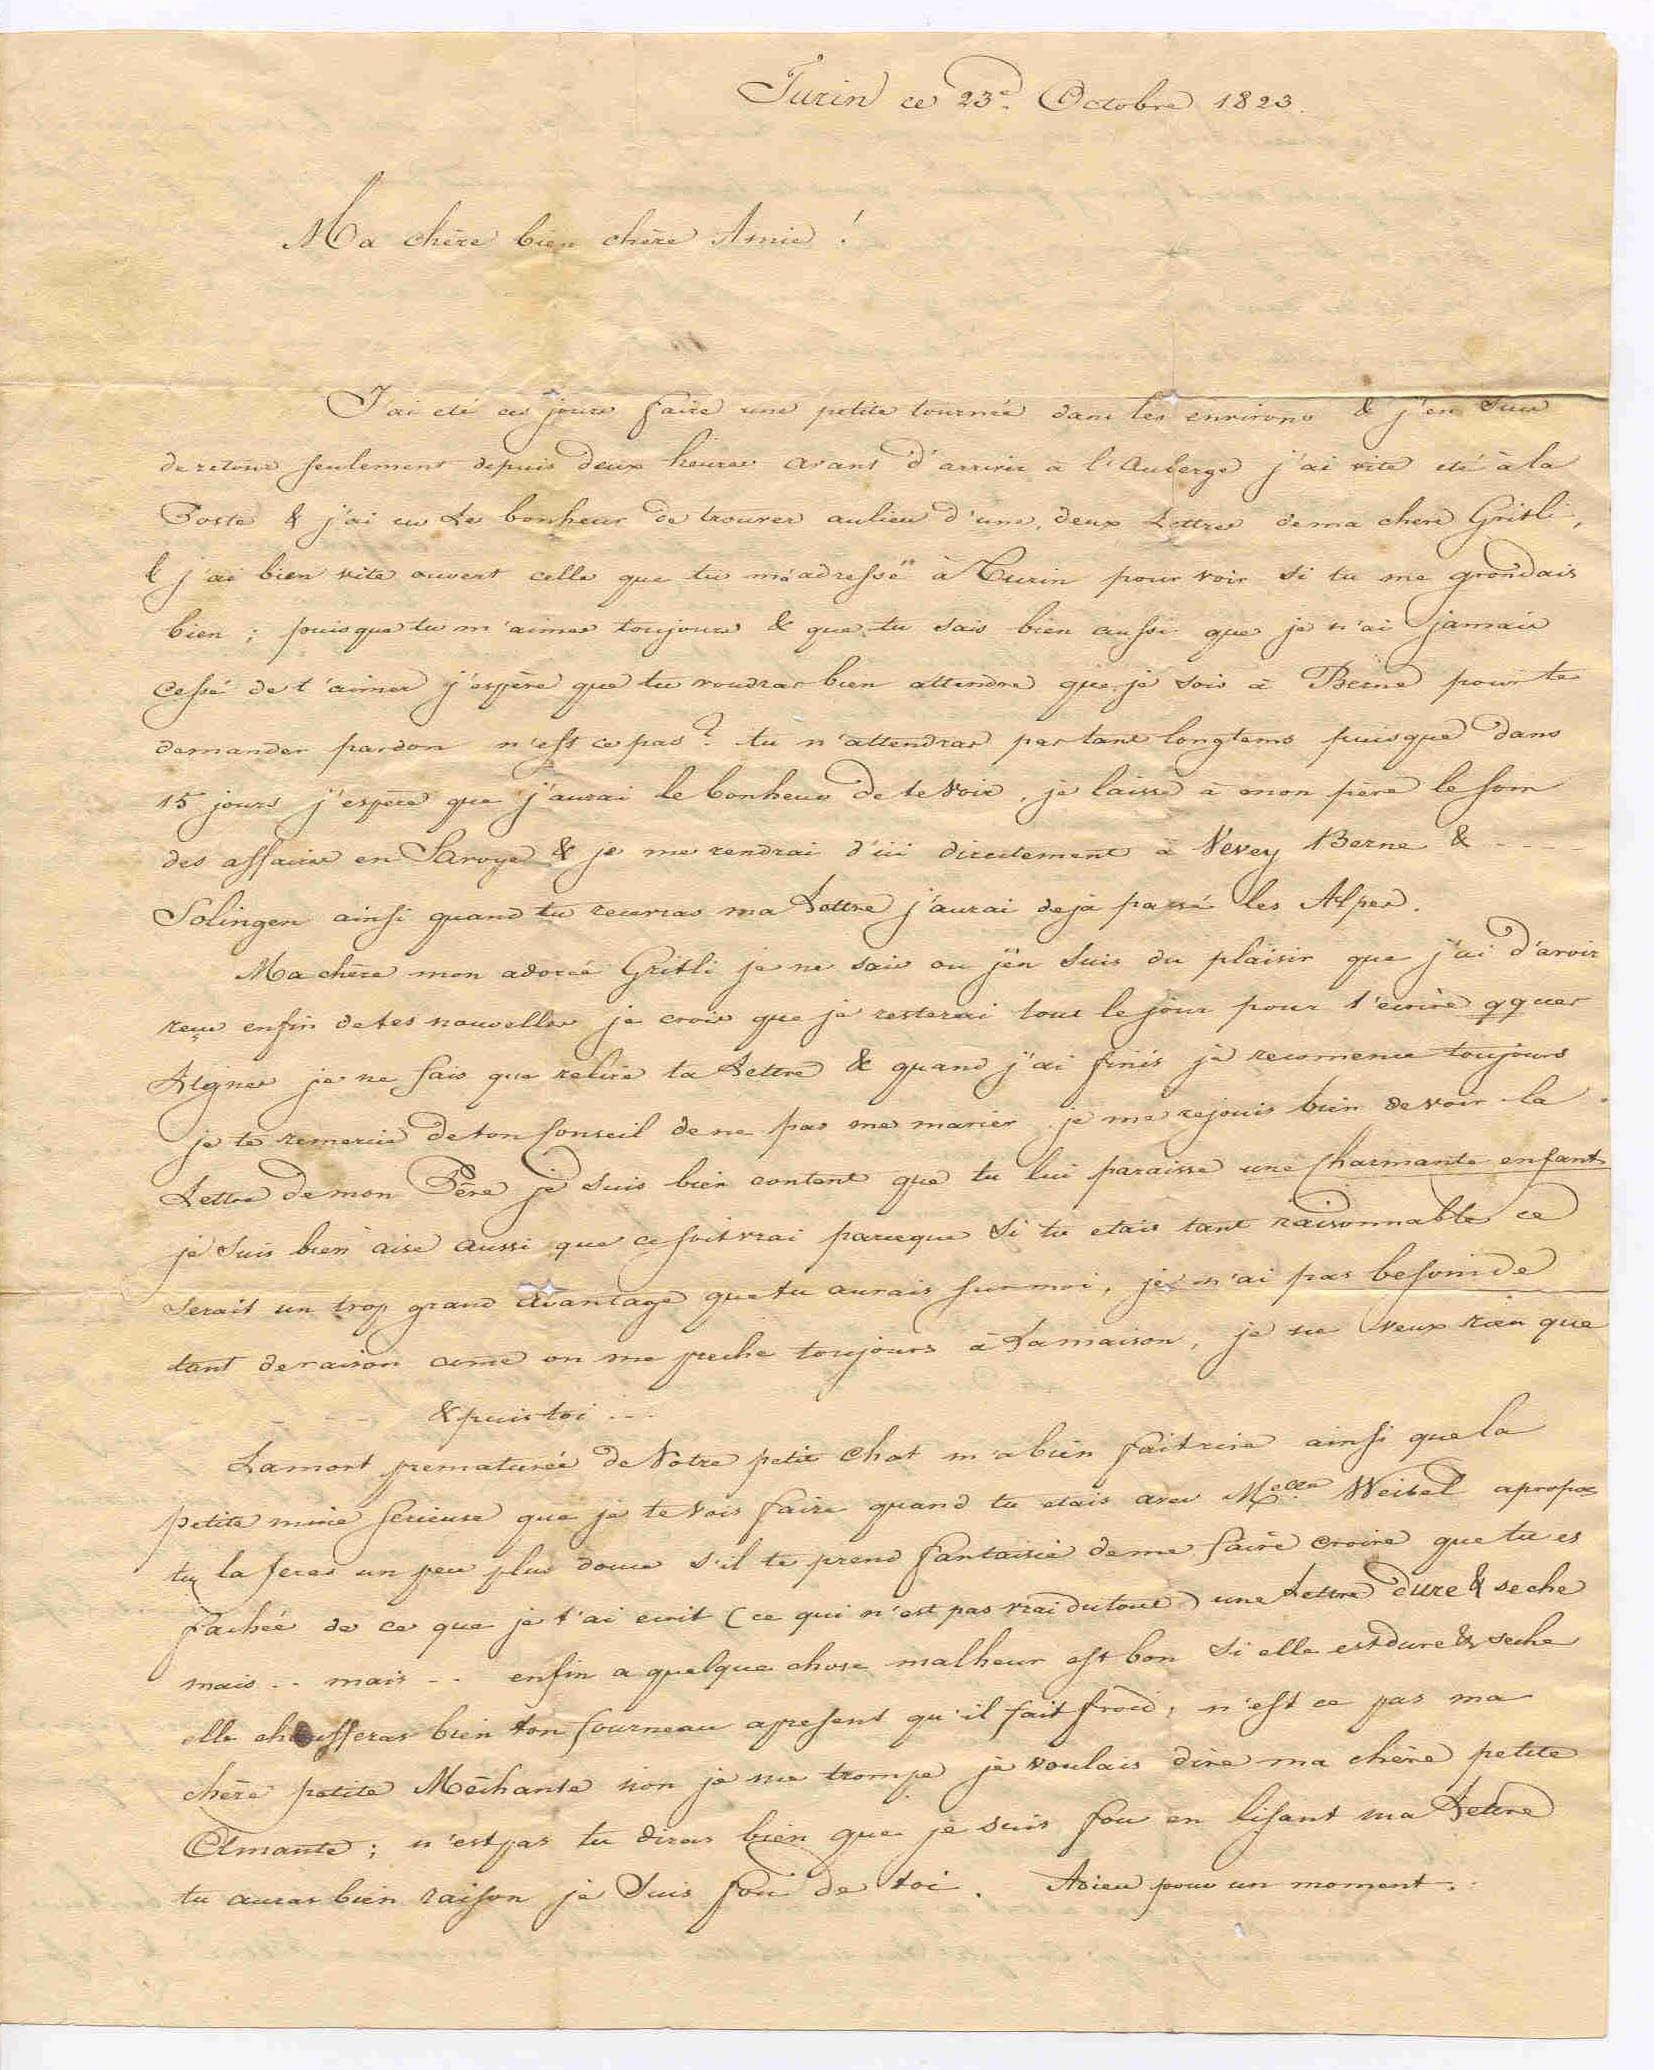 Turin ce 23e Octobre 1823.
Ma chère bien chère Amie !
J'ai eté ces jours faire une petite tournée dans les environs & j'en suis
de retour seulement depuis deux heures avant d'arriver à l'Auberge j'ai vite eté à la
Poste & j'ai eu le bonheur de trouver aulieu d'une, deux Lettres de ma chere Gritli,
& j'ai bien vite ouvert celle que tu m'a adressé à Turin pour voir si tu me grondais
bien ; puisque tu m'aimes toujours & que tu sais bien aussi que je n'ai jamais
cessé de t'aimer j'espère que tu voudras bien attendre que je sois à Berne pour te
demander pardon n'est ce pas ? tu n'attendras pas tant longtems puisque dans
15 jours j'espère que j'aurai le bonheur de te voir, je laisse à mon père le soin
des affaires en Savoye & je me rendrai d'ici directement à Vevey Berne & - - - -
Solingen ainsi quand tu recevras ma Lettre j'aurai dejà passé les Alpes.
Ma chère mon adorée Gritli je ne sais ou j'en suis du plaisir que j'ai d'avoir
reçu enfin de tes nouvelles je crois que je resterai tout le jour pour t'ecrire qques
Lignes je ne fais que relire ta Lettre & quand j'ai finis je recomence toujours
je te remercie de ton Conseil de ne pas me marier je me rejouis bien de voir la
Lettre de mon Père je suis bien content que tu lui paraisse une Charmante enfant
je suis bien aise aussi que ce soit vrai parceque si tu etais tant raisonnable ce
serait un trop grand avantage que tu aurais sur moi, je n'ai pas besoin de
tant de raison come on me preche toujours à la maison, je ne veux rien que
- - - - & puis toi - - -
La mort prematurée de Notre petit Chat m'a bien fait rire ainsi que la
petite mine serieuse que je te vois faire quand tu etais avec Melle Weibel apropos
tu la feras un peu plus douce s'il te prend fantaisie de me faire croire que tu es
fachée de ce que je t'ai ecrit (ce qui n'est pas vrai dutout) une Lettre dure & seche
mais .. mais .. enfin a quelque chose malheur est bon si elle est dure & seche
elle chaufferas bien ton fourneau apresent qu'il fait froid, n'est ce pas ma
chère petite Méchante non je me trompe je voulais dire ma chère petite
Aimante ; n'est pas tu diras bien que je suis fou en lisant ma Lettre
tu auras bien raison je suis fou de toi. Adieu pour un moment.